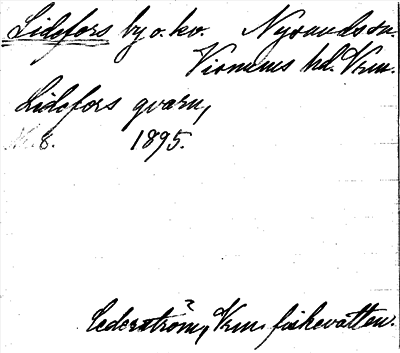 Lidefors by o. kv. Nysunds sn.
Visnums hd. Vrm.
Lidefors qvarn,
N. 8. 1895.
Cederström, Vrm. fiskevatten.